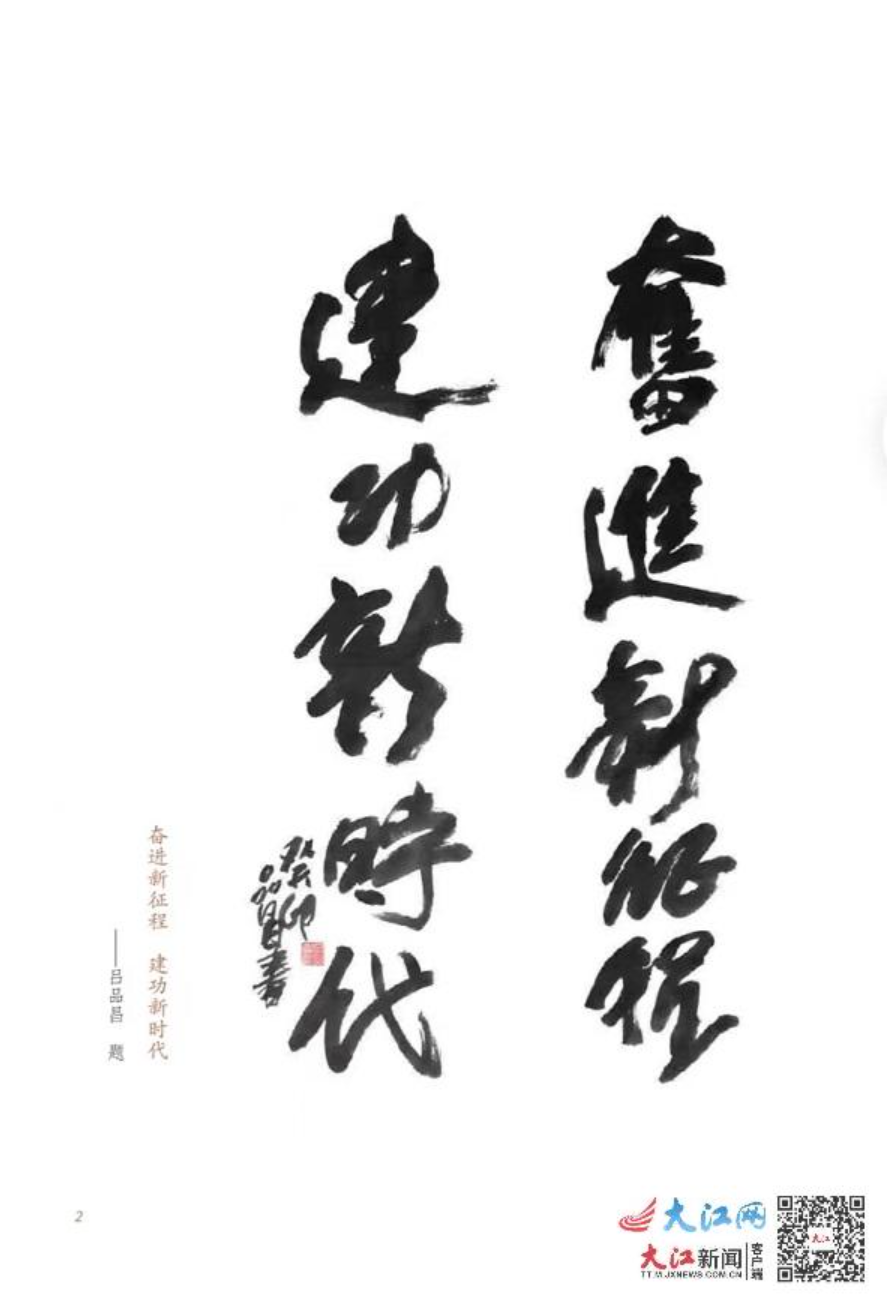 奮進新征程
建功新時代
癸卯
品昌書
奋进新征程 建功新时代
——吕品昌 题
2
大江网
大江新闻 客户端
TT.M.JXNEWS.COM.CN
大江